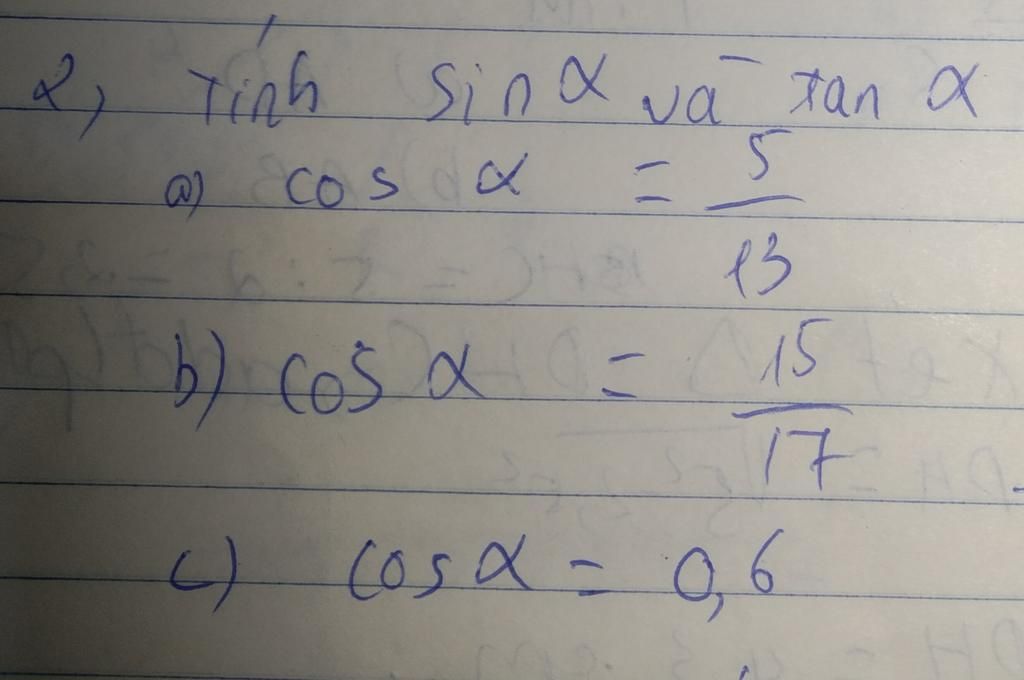 2, Tính sin α và tan α
a) cos α = 5/13
b) cos α = 15/17
c) cos α = 0,6